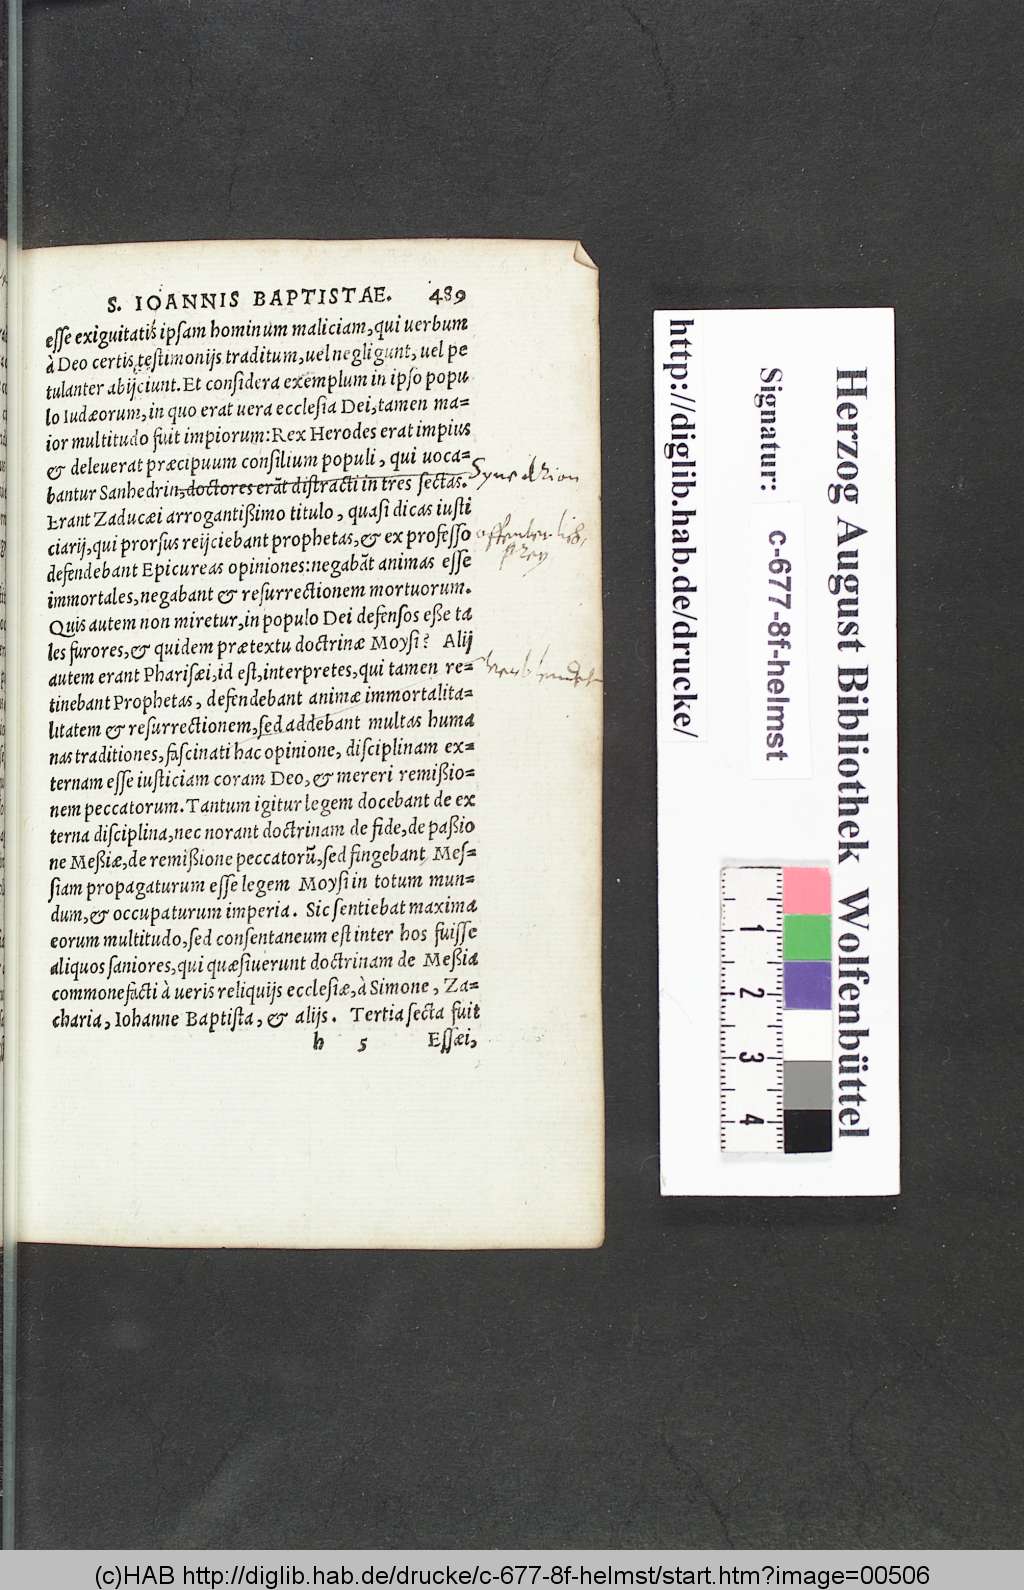 S. IOANNIS BAPTISTAE. 489
eſſe exiguitatis ipſam hominum maliciam, qui uerbum
à Deo certis teſtimonijs traditum, uel negligunt, uel pe
tulanter abijciunt. Et conſidera exemplum in ipſo popu
lo Iudæorum, in quo erat uera eccleſia Dei, tamen ma=
ior multitudo fuit impiorum: Rex Herodes erat impius
& deleuerat præcipuum conſilium populi, qui uoca=
bantur Sanhedrin, doctores erāt diſtracti in tres ſectas.
Synedrion
Erant Zaducæi arrogantißimo titulo, quaſi dicas iuſti
ciarij, qui prorſus reijciebant prophetas, & ex profeſſo
defendebant Epicureas opiniones: negabāt animas eſſe
immortales, negabant & reſurrectionem mortuorum.
Quis autem non miretur, in populo Dei defenſos eße ta
les furores, & quidem prætextu doctrinæ Moyſi? Alij
autem erant Phariſæi, id eſt, interpretes, qui tamen re=
tinebant Prophetas, defendebant animæ immortalita=
litatem & reſurrectionem, ſed addebant multas huma
nas traditiones, faſcinati hac opinione, diſciplinam ex=
ternam eſſe iuſticiam coram Deo, & mereri remißio=
nem peccatorum. Tantum igitur legem docebant de ex
terna diſciplina, nec norant doctrinam de fide, de paßio
ne Meßiæ, de remißione peccatorū, ſed fingebant Meſ=
ſiam propagaturum eſſe legem Moyſi in totum mun=
dum, & occupaturum imperia. Sic ſentiebat maxima
eorum multitudo, ſed conſentaneum eſt inter hos fuiſſe
aliquos ſaniores, qui quæſiuerunt doctrinam de Meßia
commonefacti à ueris reliquijs eccleſiæ, à Simone, Za=
charia, Iohanne Baptiſta, & alijs. Tertia ſecta fuit
h 5 Eſſæi,
http://diglib.hab.de/drucke/
Signatur:
c-677-8f-helmst
Herzog August Bibliothek Wolfenbüttel
1
2
3
4
(c)HAB http://diglib.hab.de/drucke/c-677-8f-helmst/start.htm?image=00506